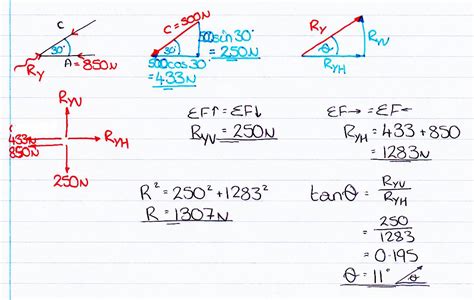 C
30°
R_Y
A = 850N
C = 500N
30°
500sin30°
= 250N
500cos30°
= 433N
R_Y
R_YV
θ
R_YH
R_YV
433N
850N
R_YH
250N
ΣF↑ = ΣF↓
R_YV = 250N
ΣF→ = ΣF←
R_YH = 433 + 850
= 1283N
R² = 250² + 1283²
R = 1307N
tanθ = R_YV
R_YH
= 250
1283
= 0.195
θ = 11°